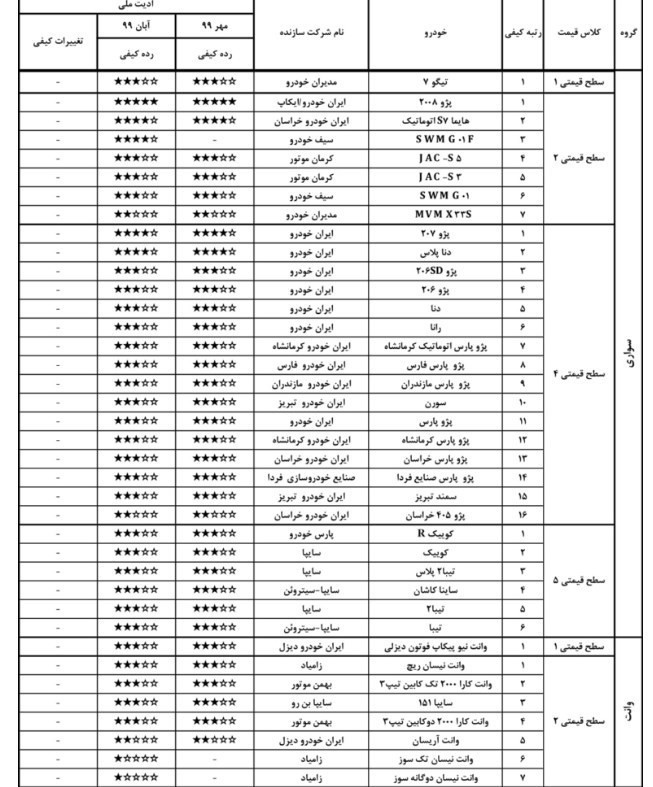 ادیت ملی
گروه کلاس قیمت رتبه کیفی خودرو نام شرکت سازنده مهر ۹۹ آبان ۹۹ تغییرات کیفی
رده کیفی رده کیفی
سواری
سطح قیمتی ۱
۱ تیگو ۷ مدیران خودرو ★★★☆☆ ★★★☆☆ -
سطح قیمتی ۲
۱ پژو ۲۰۰۸ ایران خودرو/ایکاپ ★★★★★ ★★★★★ -
۲ هایما S۷ اتوماتیک ایران خودرو خراسان ★★★★☆ ★★★★☆ -
۳ SWM G۰۱ F سیف خودرو - ★★★★☆ -
۴ JAC -S ۵ کرمان موتور ★★★☆☆ ★★★☆☆ -
۵ JAC -S ۳ کرمان موتور ★★★☆☆ ★★★☆☆ -
۶ SWM G۰۱ سیف خودرو ★★★☆☆ ★★★☆☆ -
۷ MVM X۳۳S مدیران خودرو ★★☆☆☆ ★★☆☆☆ -
سطح قیمتی ۴
۱ پژو ۲۰۷ ایران خودرو ★★★★☆ ★★★★☆ -
۲ دنا پلاس ایران خودرو ★★★★☆ ★★★★☆ -
۳ پژو ۲۰۶SD ایران خودرو ★★★☆☆ ★★★☆☆ -
۴ پژو ۲۰۶ ایران خودرو ★★★☆☆ ★★★☆☆ -
۵ دنا ایران خودرو ★★★☆☆ ★★★☆☆ -
۶ رانا ایران خودرو ★★★☆☆ ★★★☆☆ -
۷ پژو پارس اتوماتیک کرمانشاه ایران خودرو کرمانشاه ★★★☆☆ ★★★☆☆ -
۸ پژو پارس فارس ایران خودرو فارس ★★★☆☆ ★★★☆☆ -
۹ پژو پارس مازندران ایران خودرو مازندران ★★★☆☆ ★★★☆☆ -
۱۰ سورن ایران خودرو تبریز ★★★☆☆ ★★★☆☆ -
۱۱ پژو پارس ایران خودرو ★★★☆☆ ★★★☆☆ -
۱۲ پژو پارس کرمانشاه ایران خودرو کرمانشاه ★★★☆☆ ★★★☆☆ -
۱۳ پژو پارس خراسان ایران خودرو خراسان ★★★☆☆ ★★★☆☆ -
۱۴ پژو پارس صنایع فردا صنایع خودروسازی فردا ★★★☆☆ ★★★☆☆ -
۱۵ سمند تبریز ایران خودرو تبریز ★★★☆☆ ★★★☆☆ -
۱۶ پژو ۴۰۵ خراسان ایران خودرو خراسان ★★☆☆☆ ★★☆☆☆ -
سطح قیمتی ۵
۱ کوییک R پارس خودرو ★★★☆☆ ★★★☆☆ -
۲ کوییک سایپا ★★★☆☆ ★★★☆☆ -
۳ تیبا۲ پلاس سایپا ★★★☆☆ ★★★☆☆ -
۴ ساینا کاشان سایپا-سیتروئن ★★★☆☆ ★★★☆☆ -
۵ تیبا۲ سایپا ★★★☆☆ ★★★☆☆ -
۶ تیبا سایپا-سیتروئن ★★★☆☆ ★★★☆☆ -
وانت
سطح قیمتی ۱
۱ وانت نیو پیکاپ فوتون دیزلی ایران خودرو دیزل ★★★☆☆ ★★★☆☆ -
سطح قیمتی ۲
۱ وانت نیسان ریچ زامیاد ★★★☆☆ ★★★☆☆ -
۲ وانت کارا ۲۰۰۰ تک کابین تیپ۳ بهمن موتور ★★★☆☆ ★★★☆☆ -
۳ سایپا ۱۵۱ سایپا بن رو ★★★☆☆ ★★★☆☆ -
۴ وانت کارا ۲۰۰۰ دوکابین تیپ۳ بهمن موتور ★★★☆☆ ★★★☆☆ -
۵ وانت آریسان ایران خودرو دیزل ★★☆☆☆ ★★☆☆☆ -
۶ وانت نیسان تک سوز زامیاد - ★☆☆☆☆ -
۷ وانت نیسان دوگانه سوز زامیاد - ★☆☆☆☆ -